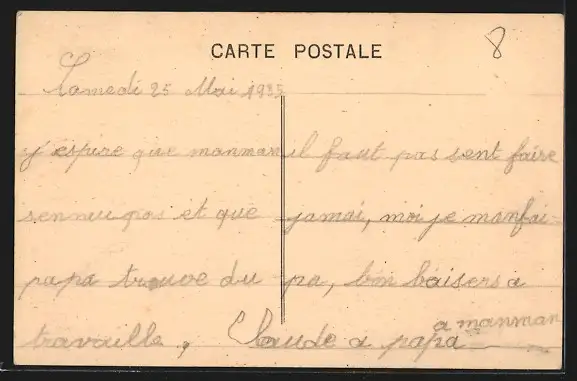 8
CARTE POSTALE
Samedi 25 Mai 1935
j'espire que manman
sennui pas et que
papa trouve du
travaille,
il faut pas sent faire
jamai, moi je manfai
pa, bon baisers a
a manman
Claude a papa